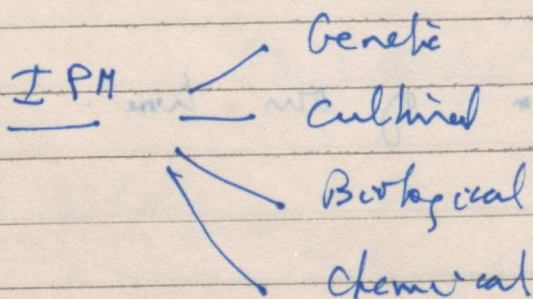 Genetic
IPM
Cultural
Biological
Chemical